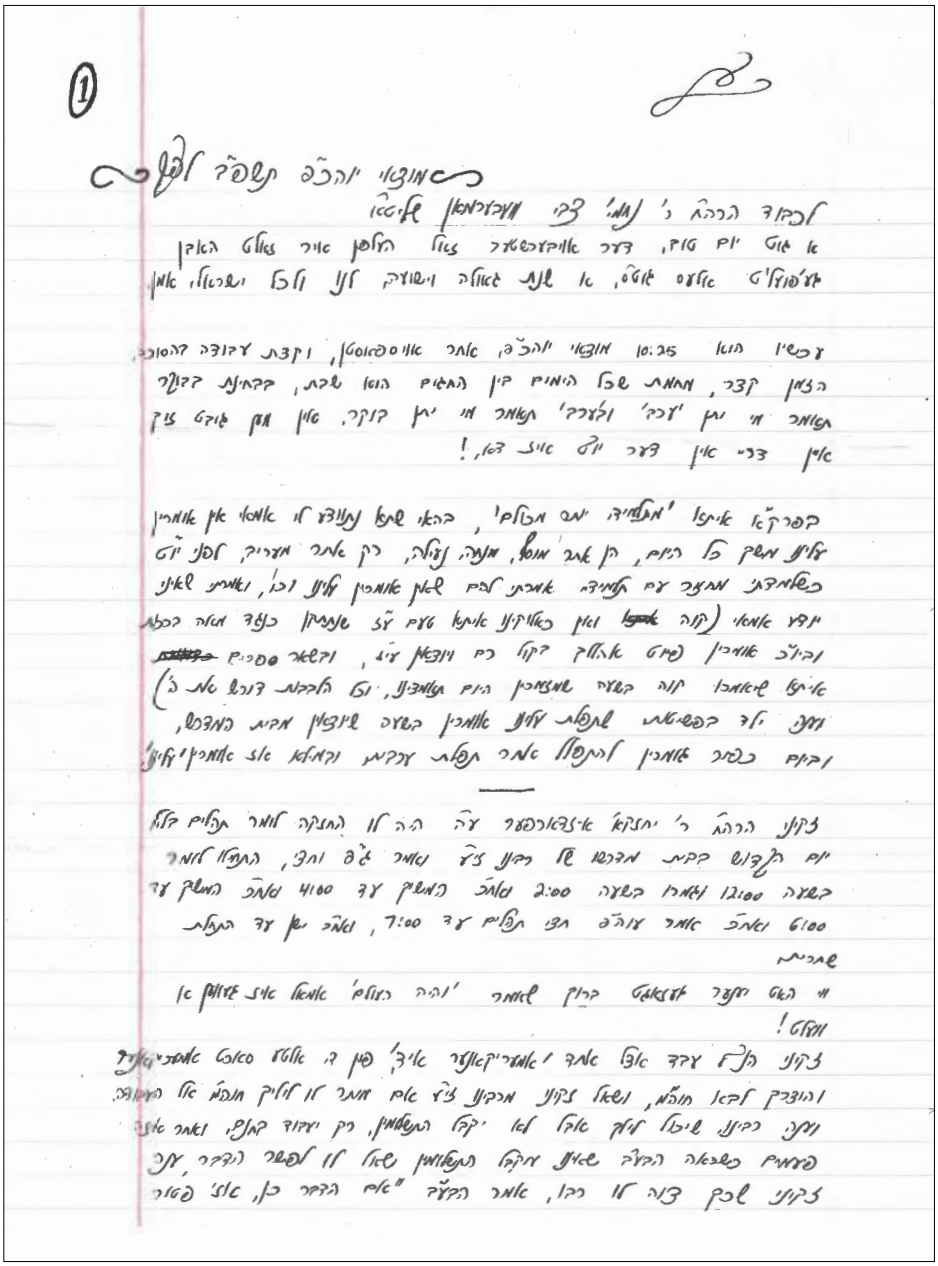 1
בעזה"י
מוצאי יוהכ"פ תשפ"ב לפ"ק
לכבוד הרה"ח ר' נחמי' צבי וועבערמאן שליט"א
א גוט יום טוב, דער אויבערשטער זאל העלפן איר זאלט האבן
געפועל'ט אלעס גוט'ס, א שנת גאולה וישועה לנו ולכל ישראל, אמן
עכשיו הוא 10:25 מוצאי יוהכ"פ, אחר אויספאסטן, וקצת עבודה דהסוכה,
הזמן קצר, מחמת שכל הימים בין החגים הוא שבת, בבחינת בבוקר
תאמר מי יתן 'ערב' ו'בערב' תאמר מי יתן בוקר, אין מען גובט זיך
אין דריי אין דער יו"ט איז דא, !
בפרק"א איתא 'מתלמידי יותר מכולם', בהאי שתא נתוודע לי אמאי אין אומרין
עלינו משך כל היום, הן אחר מוסף, מנחה, נעילה, רק אחר מעריב, לפני יו"ט
כשלמדתי מחזור עם תלמידי אמרתי להם שאין אומרין עלינו וכו', ואמרתי שאיני
יודע אמאי (קוה ואין כאלוקינו איתא טעם ע"ז שנתתקן כנגד מאה ברכות
וביו"כ אומרין פיוט אהללך בקול רם ויוצאין עי"ז, ובשאר ספרים
איתא שיאמרו קוה בשעה שמזמרין היום תאמצינו, וכל הלבבות דורש את ה')
וענה ילד בפשיטות שתפלת עלינו אומרין בשעה שיוצאין מבית המדרש,
וביום כיפור גומרין להתפלל אחר תפלת ערבית ובמילא אז אומרין 'עלינו'
זקיני הרה"ח ר' יחזקאל אוזדארפער ע"ה היה לו החזקה לומר תהלים בליל
יום הקדוש בבית מדרשו של רבינו זי"ע ואמר ג"פ וחצי, התחילו לומר
בשעה 12:00 וגמרו בשעה 2:00 ואח"כ המשיך עד 4:00 ואח"כ המשיך עד
6:00 ואח"כ אמר עוה"פ חצי תהלים עד 7:00, ואח"כ ישן עד התחלת
שחרית
ווי האט יענער געזאגט ברוך שאמר 'והיה העולם' אמאל איז געווען א
וועלט!
זקיני הנ"ל עבד אצל אחד 'אמעריקאנער איד' פון די אלטע סארט
והוצרך לבא חוה"מ, ושאל זקיני מרבינו זי"ע אם מותר לו לילך חוה"מ אל העבודה,
וענה רבינו, שיכול לילך אבל לא יקבל התשלומין, רק יעבוד בחנם, ואחר איזה
פעמים כשראה הבע"ב שאינו מקבל התשלומין שאל לו לפשר הדבר, ענה
זקיני שכך צוה לו רבו, אמר הבע"ב "אם הדבר כן, אזי פטור